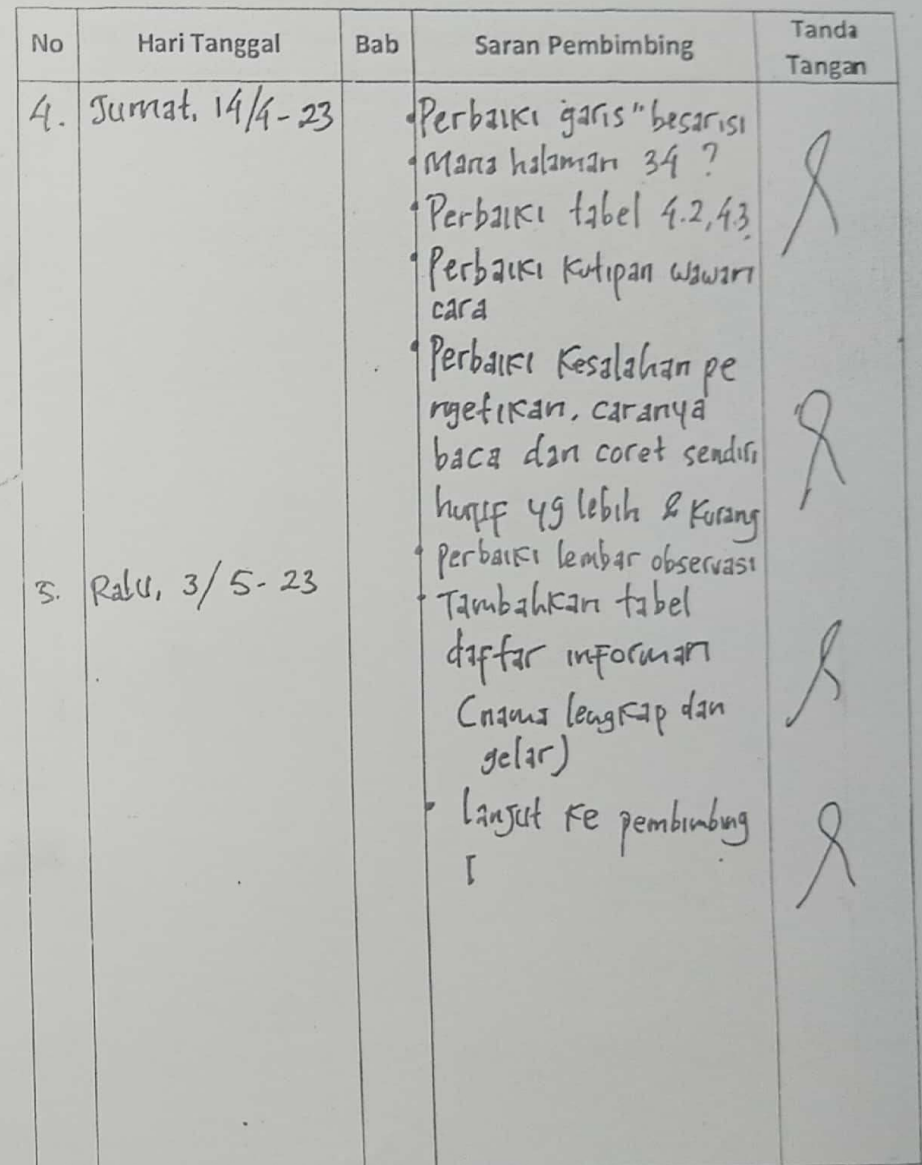 No Hari Tanggal Bab Saran Pembimbing Tanda Tangan
4. Jumat, 14/4-23 • Perbaiki garis" besar isi
• Mana halaman 34 ?
• Perbaiki tabel 4.2, 4.3
• Perbaiki kutipan wawan
cara
• Perbaiki Kesalahan pe
ngetikan, caranya
baca dan coret sendiri
huruf yg lebih & kurang
• Perbaiki lembar observasi
5. Rabu, 3/5-23 • Tambahkan tabel
daftar informan
(nama lengkap dan
gelar)
• lanjut ke pembimbing
I